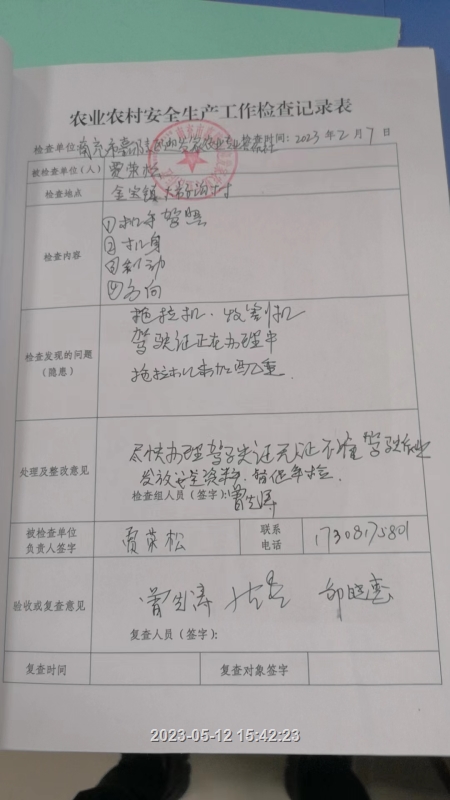 农业农村安全生产工作检查记录表
检查单位 检查时间：2023年2月7日
被检查单位(人) 贾荣松
检查地点 金宝镇
检查内容
①机手驾照
②机身
③制动
④方向
检查发现的问题
(隐患)
拖拉机、收割机
驾驶证正在办理中
拖拉机
处理及整改意见
尽快办理驾驶证无证不准驾驶作业
发放安全资料，督促年检.
检查组人员(签字)：曾先涛
被检查单位
负责人签字
贾荣松
联系
电话
17308175801
验收或复查意见
曾先涛 邹晓惠
复查人员(签字)：
复查时间 复查对象签字
2023-05-12 15:42:23